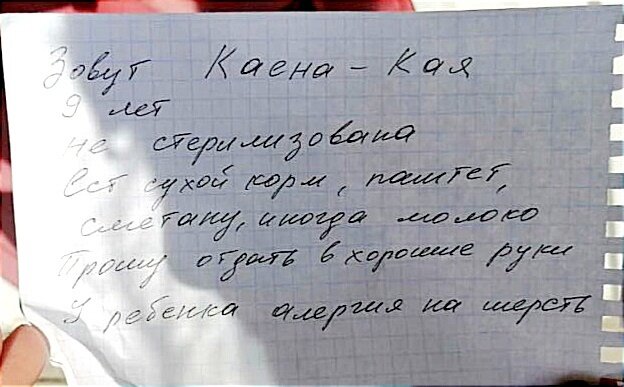 Зовут Каена - Кая
9 лет
не стерилизована
Ест сухой корм, паштет,
сметану, иногда молоко
Прошу отдать в хорошие руки
У ребенка алергия на шерсть